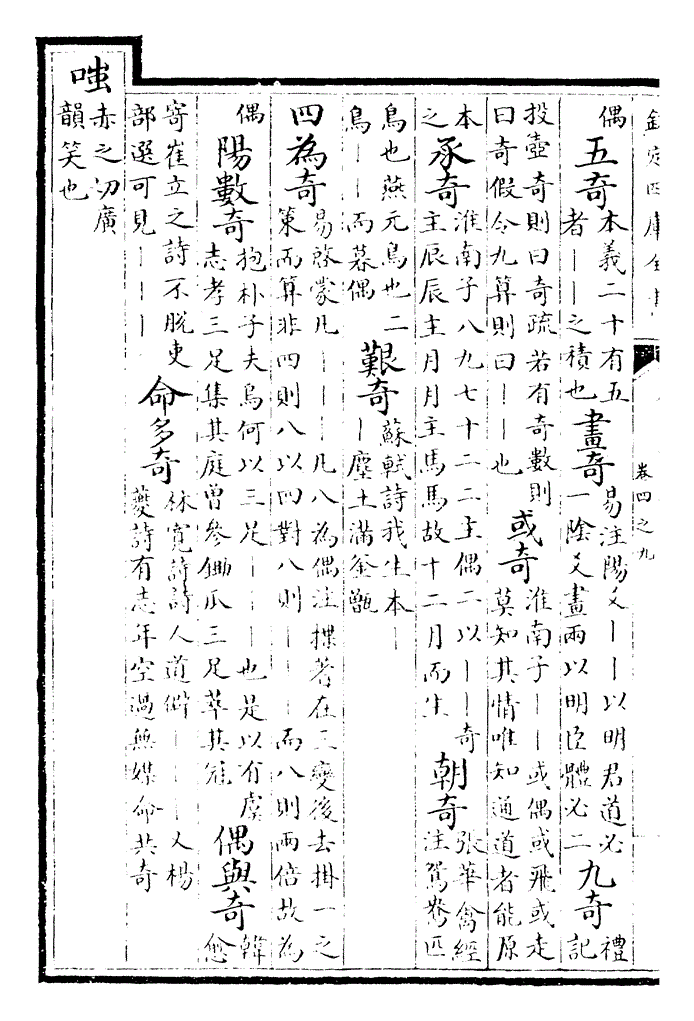 欽定四庫全書 卷四之九
偶 五奇 本義二十有五
者丨丨之積也 畫奇 易注陽爻丨丨以明君道必
一陰爻畫兩以明臣體必二 九奇 禮
記
投壺奇則曰奇疏若有奇數則
曰奇假令九算則曰丨丨也 或奇 淮南子丨丨或偶或飛或走
莫知其情唯知通道者能原
本
之 承奇 淮南子八九七十二二主偶二以丨丨奇
主辰辰主月月主馬馬故十二月而生 朝奇 張華禽經
注鴛鴦匹
鳥也燕元鳥也二
鳥丨丨而暮偶 艱奇 蘇軾詩我生本丨
丨塵土滿釜甑
四為奇 易啟蒙凡丨丨丨丨凡八為偶注揲蓍在三變後去掛一之
策而算非四則八以四對八則丨丨丨而八則兩倍故為
偶 陽數奇 抱朴子夫烏何以三足丨丨丨也是以有虞
志孝三足集其庭曾參鋤瓜三足萃其冠 偶與奇 韓
愈
寄崔立之詩不脫吏
部選可見丨丨丨 命多奇 林寬詩詩人道僻丨丨丨又楊
夔詩有志年空過無媒命共奇
嗤 赤之切廣
韻笑也